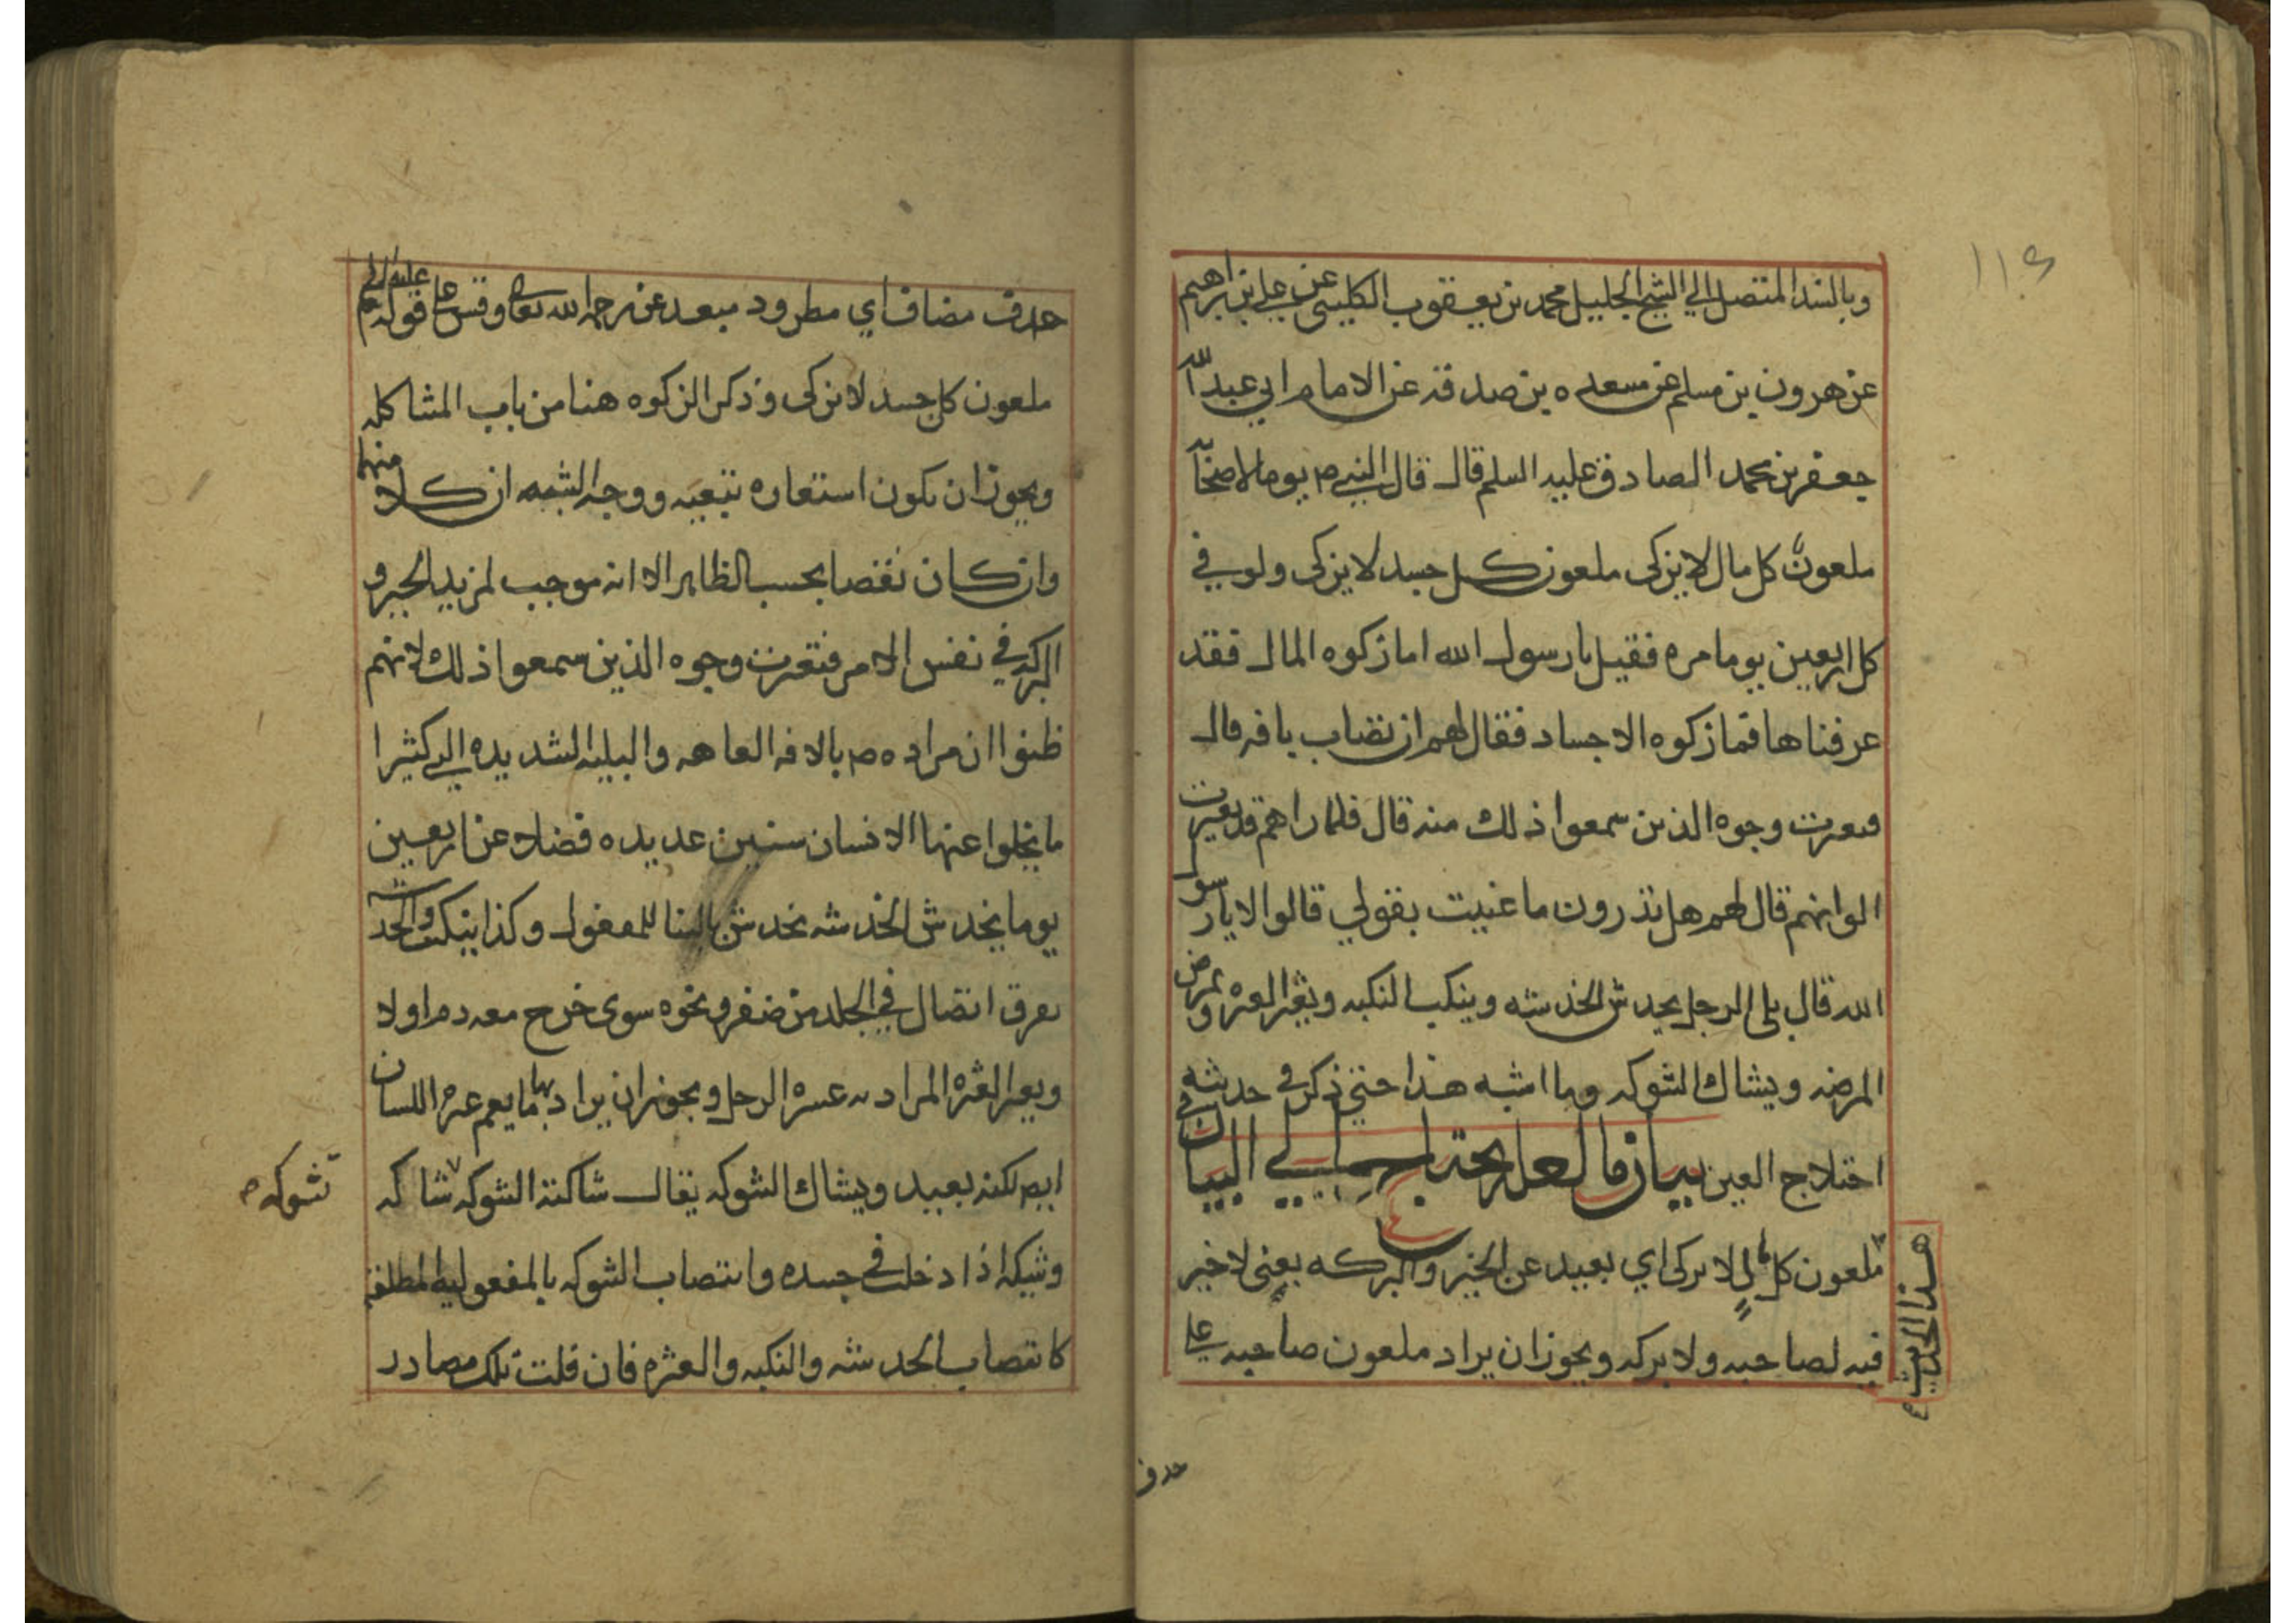 ١١٤
وبالسند المتصل الي الشيخ الجليل محمد بن يعقوب الكليني عن علي بن ابراهيم
عن هرون بن مسلم عن مسعده بن صدقه عن الامام ابي عبد الله
جعفر بن محمد الصادق عليه السلم قال قال النبي ص يوما لاصحابه
ملعون كل مال لا يزكى ملعون كل جسد لا يزكى ولو في
كل اربعين يوما مره فقيل يا رسول الله اما زكوه المال فقد
عرفناها فما زكوه الاجساد فقال لهم ان تصاب بافه قال
فتغيرت وجوه الذين سمعوا ذلك منه قال فلما راهم قد تغيرت
الوانهم قال لهم هل تدرون ما عنيت بقولي قالوا لا يا رسول
الله قال بلى الرجل يخدش الخدشه وينكب النكبه ويعثر العثره ويمرض
المرضه ويشاك الشوكه وما اشبه هذا حتى ذكر في حديثه
اختلاج العين بيان ما لعله يحتاج الي البيان في
هذا الحديث
ملعون كل مال لا يزكى اي بعيد عن الخير والبركه يعني لا خير
فيه لصاحبه ولا بركه ويجوز ان يراد ملعون صاحبه على
حذف
حذف مضاف اي مطرود مبعد عن رحمة الله تعالى وقس على قوله عليه السلم
ملعون كل جسد لا يزكى وذكر الزكوه هنا من باب المشاكله
ويجوز ان يكون استعاره تبعيه ووجه الشبه ان كلا منهما
وان كان نقصا بحسب الظاهر الا انه موجب لمزيد الخير و
البركه في نفس الامر فتغيرت وجوه الذين سمعوا ذلك لانهم
ظنوا ان مراده ص بالافه العاهه والبليه الشديده التي كثيرا
ما يخلوا عنها الانسان سنين عديده فضلا عن اربعين
يوما يخدش الخدشه يخدش بالبنا للمفعول وكذا ينكب والخدشه
تفرق اتصال في الجلد من ظفر ونحوه سوى خرج معه دم او لا
ويعثر العثره المراد به عثره الرجل ويجوز ان يراد بها ما يعم عثره اللسان
ايض لكنه بعيد ويشاك الشوكه يقال شاكته الشوكه تشاكه
شوكه ص
وشيكه اذا دخلت في جسده وانتصاب الشوكه بالمفعوليه المطلقه
كانتصاب الخدشه والنكبه والعثره فان قلت تلك مصادر